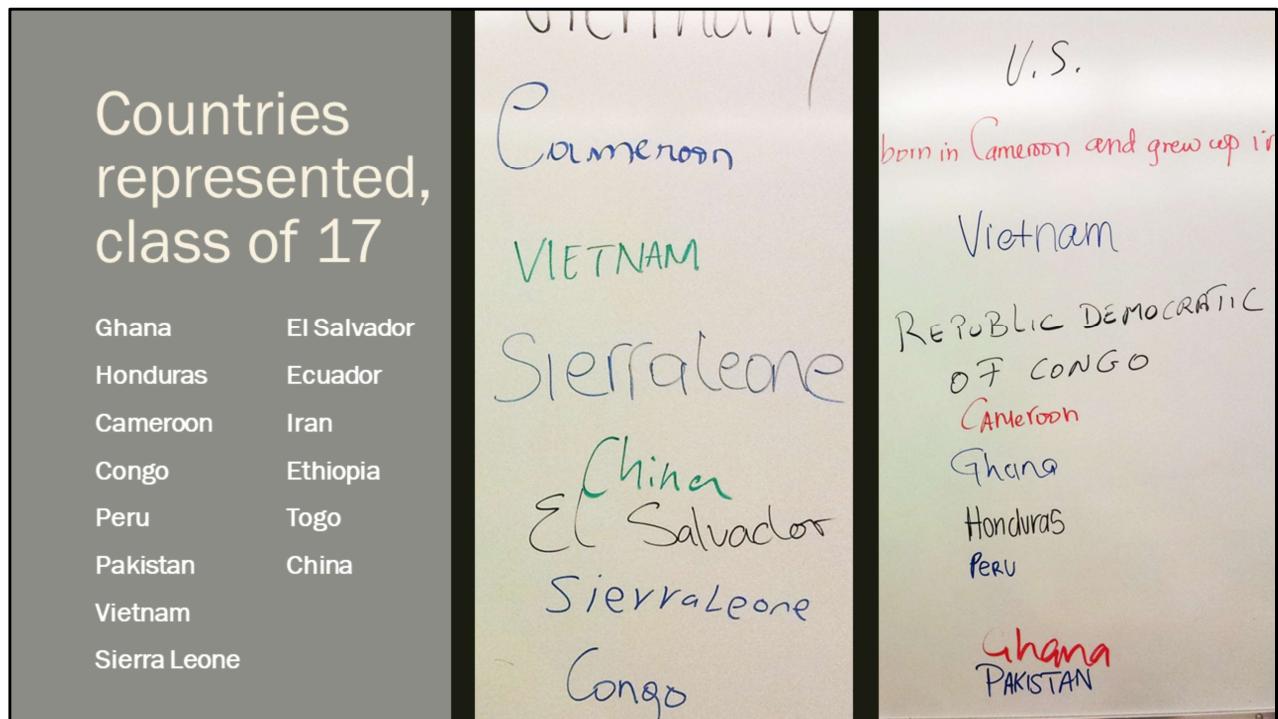 Countries
represented,
class of 17
Ghana
Honduras
Cameroon
Congo
Peru
Pakistan
Vietnam
Sierra Leone
El Salvador
Ecuador
Iran
Ethiopia
Togo
China
Germany
Cameroon
VIETNAM
Sierraleone
China
El Salvador
Sierraleone
Congo
U.S.
born in Cameroon and grew up in
Vietnam
REPUBLIC DEMOCRATIC
OF CONGO
Cameroon
Ghana
Honduras
PERU
Ghana
PAKISTAN